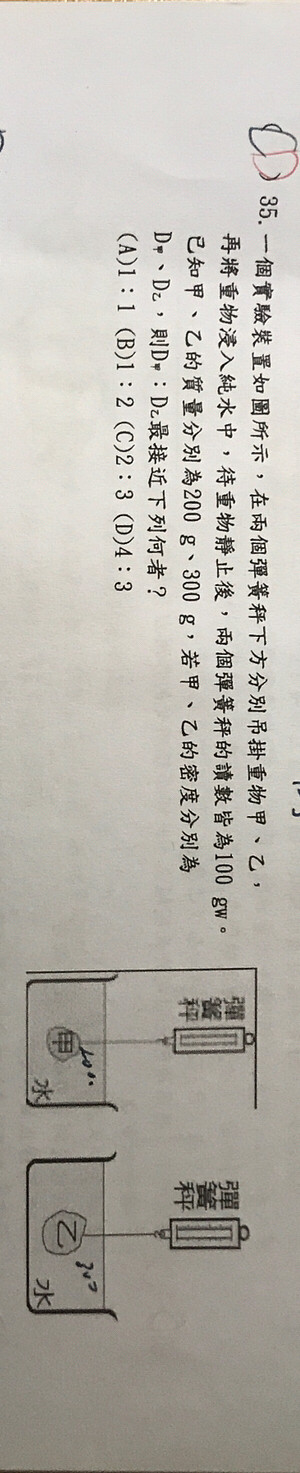 (D) 35. 一個實驗裝置如圖所示，在兩個彈簧秤下方分別吊掛重物甲、乙，
再將重物浸入純水中，待重物靜止後，兩個彈簧秤的讀數皆為100 gw。
已知甲、乙的質量分別為200 g、300 g，若甲、乙的密度分別為
D甲、D乙，則D甲：D乙最接近下列何者？
(A)1：1 (B)1：2 (C)2：3 (D)4：3
彈簧秤
甲
水
彈簧秤
乙
300
水